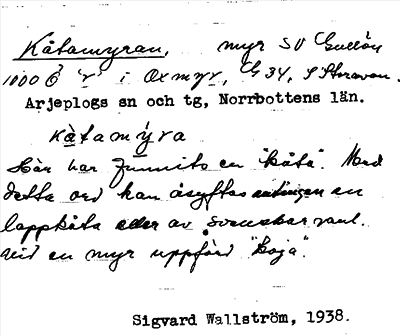 Kåtamyran, myr SV Gullön
1000 Ö "r" i Oxmyr, G 34, S Storavan.
Arjeplogs sn och tg, Norrbottens län.
kåtamýra
Här har funnits en "kåta". Med
detta ord kan åsyftas antingen en
lappkåta eller av svenskar vanl.
vid en myr uppförd "koja".
Sigvard Wallström, 1938.